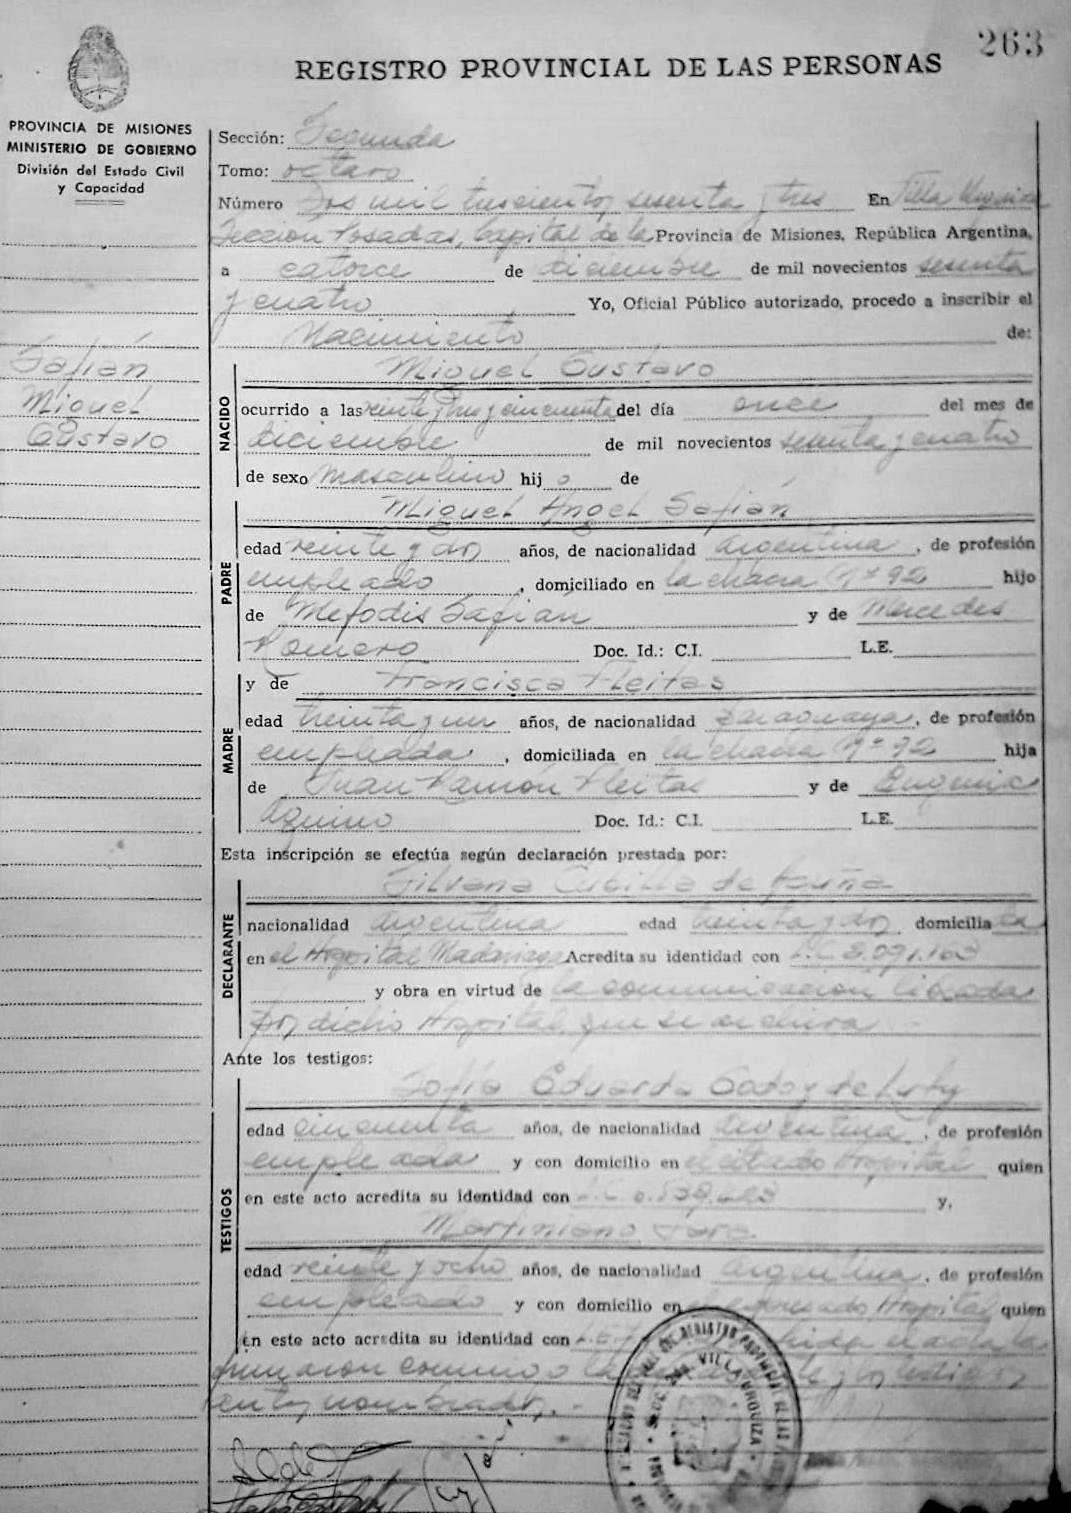 263
REGISTRO PROVINCIAL DE LAS PERSONAS
PROVINCIA DE MISIONES
MINISTERIO DE GOBIERNO
División del Estado Civil
y Capacidad
Safián
Miguel
Gustavo
Sección: Segunda
Tomo: octavo
Número Dos mil trescientos sesenta y tres En Villa Urquiza
Sección Posadas, Capital de la Provincia de Misiones, República Argentina,
a catorce de diciembre de mil novecientos sesenta
y cuatro Yo, Oficial Público autorizado, procedo a inscribir el
Nacimiento de:
NACIDO
Miguel Gustavo
ocurrido a las veinte y tres y cincuenta del día once del mes de
diciembre de mil novecientos sesenta y cuatro
de sexo masculino hij o de
PADRE
Miguel Angel Safián
edad veinte y dos años, de nacionalidad argentina, de profesión
empleado, domiciliado en la chacra Nº 92 hijo
de Mefodis Safián y de Mercedes
Romero Doc. Id.: C.I. L.E.
MADRE
y de Francisca Fleitas
edad treinta y un años, de nacionalidad paraguaya, de profesión
empleada, domiciliada en la chacra Nº 92 hija
de Juan Ramón Fleitas y de Eugenia
Aquino Doc. Id.: C.I. L.E.
Esta inscripción se efectúa según declaración prestada por:
DECLARANTE
Silvana Cubilla de Acuña
nacionalidad argentina edad treinta y dos domicilia da
en el Hospital Madariaga Acredita su identidad con L.C
y obra en virtud de la comunicación librada
por dicho Hospital, que se archiva
Ante los testigos:
TESTIGOS
Sofía Eduarda Godoy de
edad cincuenta años, de nacionalidad argentina, de profesión
empleada y con domicilio en el citado Hospital quien
en este acto acredita su identidad con L.C y,
Martiniano
edad veinte y ocho años, de nacionalidad argentina, de profesión
empleado y con domicilio en el expresado Hospital quien
en este acto acredita su identidad con L.E. el acta la
firmaron conmigo la y los testigos
VILLA URQUIZA